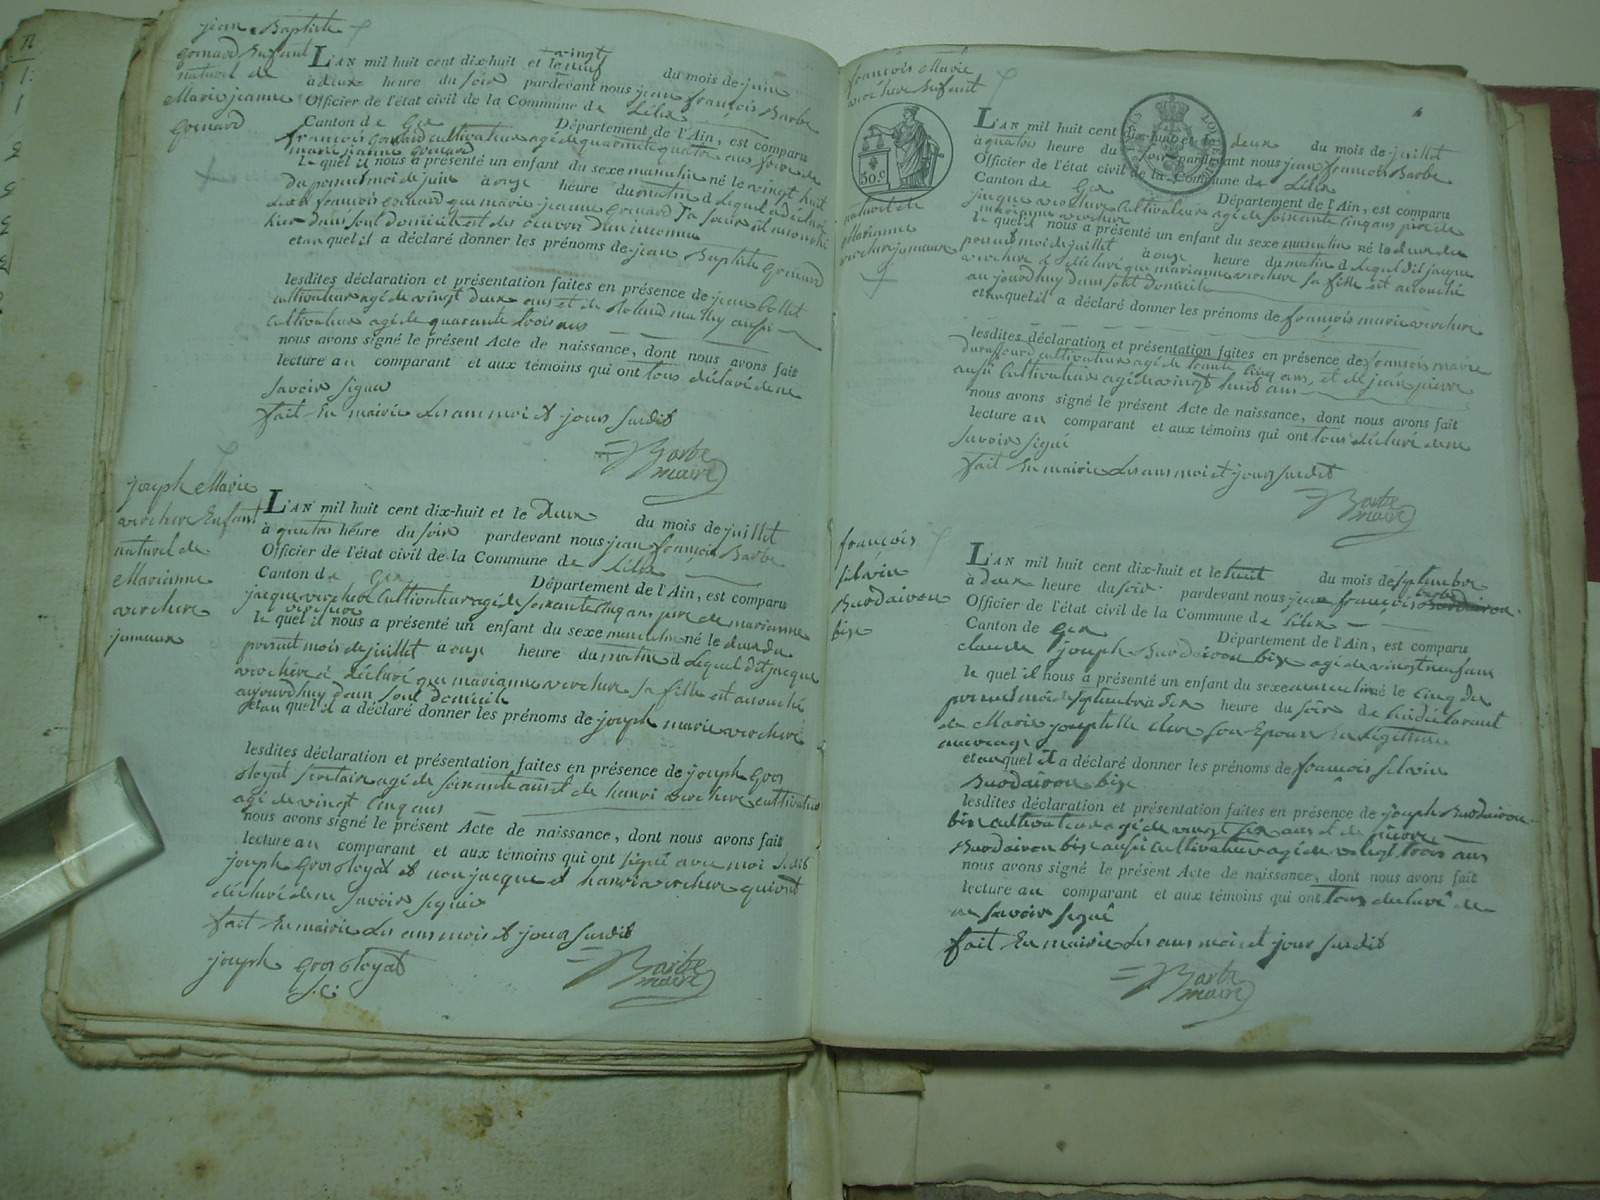 jean Baptiste
gonard Enfant
naturel de
Marie jeanne
gonard
L'AN mil huit cent dix-huit et le vingt neuf du mois de juin
à deux heure du soir pardevant nous jean françois Barbe
Officier de l'état civil de la Commune de Lélex
Canton de Gex Département de l'Ain, est comparu
françois gonard cultivateur agé de quarante quatre ans frere de
marie jeanne gonard
le quel il nous a présenté un enfant du sexe masculin né le vingt huit
du present moi de juin à onze heure du matin d lequel a déclaré
hier dans sont domicile
et auquel il a déclaré donner les prénoms de jean Baptiste gonard
lesdites déclaration et présentation faites en présence de jean
cultivateur agé de vingt deux ans et de Roland mathy aussi
cultivateur agé de quarante trois ans
nous avons signé le présent Acte de naissance, dont nous avons fait
lecture au comparant et aux témoins qui ont tous déclaré de ne
savoir signer
fait En mairie Les an moi et jour susdit
Barbe
maire
joseph Marie
verchere Enfant
naturel de
Marianne
verchere
jumeaux
L'AN mil huit cent dix-huit et le deux du mois de juillet
à quatre heure du soir pardevant nous jean françois Barbe
Officier de l'état civil de la Commune de Lélex
Canton de Gex Département de l'Ain, est comparu
jacque verchere cultivateur agé de soixante cinq ans pere de marianne
verchere
le quel il nous a présenté un enfant du sexe masculin né le deux du
present mois de juillet à onze heure du matin d lequel dit jacque
verchere à déclaré que marianne verchere sa fille est accouché
aujourdhuy dans sont domicile
et au quel il a déclaré donner les prénoms de joseph marie verchere
lesdites déclaration et présentation faites en présence de joseph gros
secretaire agé de soixante ans et de hanri verchere cultivateur
agé de vingt cinq ans
nous avons signé le présent Acte de naissance, dont nous avons fait
lecture au comparant et aux témoins qui ont signé avec moi
joseph gros et non jacque et hanri verchere qui ont
déclaré de ne savoir signer
fait En mairie Les an mois et jour susdit
joseph gros
Barbe
maire
françois Marie
verchere Enfant
naturel de
Marianne
verchere jumeaux
50 c
L'AN mil huit cent dix-huit et le deux du mois de juillet
à quatre heure du soir pardevant nous jean françois Barbe
Officier de l'état civil de la Commune de Lélex
Canton de Gex Département de l'Ain, est comparu
jacque verchere cultivateur agé de soixante cinq ans pere de
marianne verchere
le quel il nous a présenté un enfant du sexe masculin né le deux du
present moi de juillet à onze heure du matin d lequel dit jacque
verchere à déclaré que marianne verchere sa fille est accouché
aujourdhuy dans sont domicile
et au quel il a déclaré donner les prénoms de françois marie verchere
lesdites déclaration et présentation faites en présence de françois marie
cultivateur agé de trante cinq ans, et de jean pierre
aussi cultivateur agé de vingt huit ans
nous avons signé le présent Acte de naissance, dont nous avons fait
lecture au comparant et aux témoins qui ont tous déclaré de ne
savoir signé
fait En mairie Les an moi et jour susdit
Barbe
maire
françois
silvin
Burdairon
bize
L'AN mil huit cent dix-huit et le huit du mois de septembre
à deux heure du soir pardevant nous jean françois Barbe
Officier de l'état civil de la Commune de Lélex
Canton de Gex Département de l'Ain, est comparu
claude joseph Burdairon bize agé de vingt neuf ans
le quel il nous a présenté un enfant du sexe masculin né le cinq du
present moi de septembre à dix heure du soir de lui déclarant
de Marie josephtte son Epouse En légitime
mariage
et au quel il a déclaré donner les prénoms de françois silvin
Burdairon bize
lesdites déclaration et présentation faites en présence de joseph Burdairon
bize cultivateur agé de vingt six ans et de pierre
Burdairon bize aussi cultivateur agé de vingt trois ans
nous avons signé le présent Acte de naissance, dont nous avons fait
lecture au comparant et aux témoins qui ont tous déclaré de
ne savoir signé
fait En mairie Les an moi et jour susdit
Barbe
maire